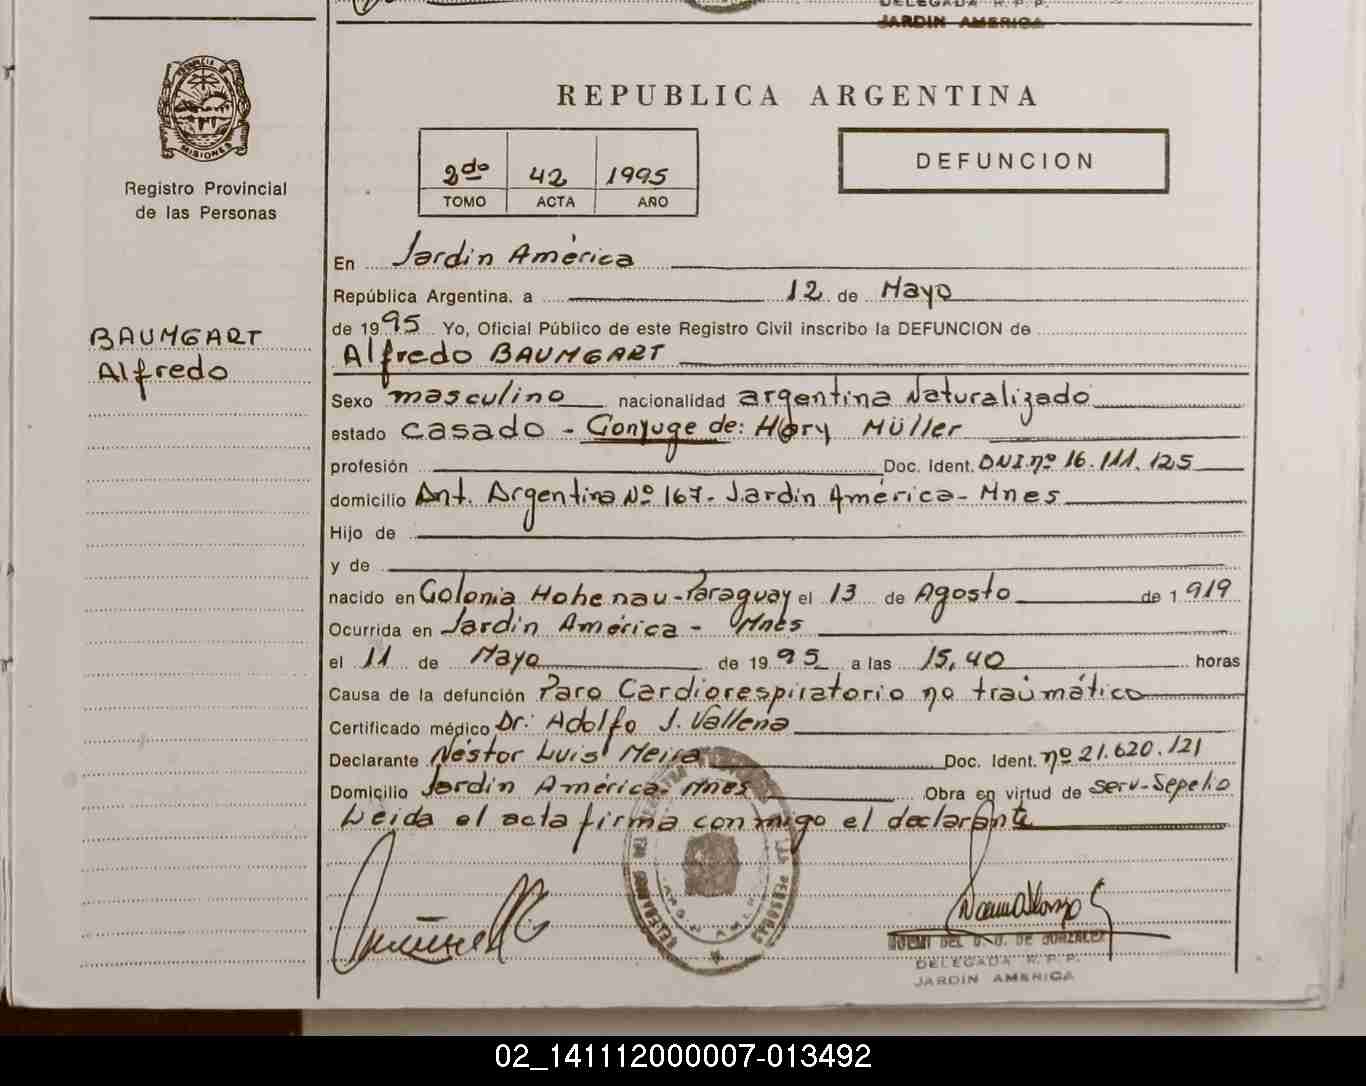 DELEGADA R. P. P.
JARDIN AMERICA
PROVINCIA DE
MISIONES
Registro Provincial
de las Personas
REPUBLICA ARGENTINA
2do 42 1995
TOMO ACTA AÑO
DEFUNCION
En Jardín América
República Argentina, a 12 de Mayo
de 1995 Yo, Oficial Público de este Registro Civil inscribo la DEFUNCION de
BAUMGART
Alfredo
Alfredo BAUMGART
Sexo masculino nacionalidad argentina Naturalizado
estado casado - Conyuge de: Hary Müller
profesión Doc. Ident. DNI.nº 16.111.125
domicilio Ant. Argentina Nº 167- Jardín América- Mnes
Hijo de
y de
nacido en Colonia Hohenau-Paraguay el 13 de Agosto de 1919
Ocurrida en Jardín América - Mnes
el 11 de Mayo de 1995 a las 15,40 horas
Causa de la defunción Paro Cardiorespiratorio no traumático
Certificado médico Dr: Adolfo J. Vallena
Declarante Néstor Luis Meira Doc. Ident. nº 21.620.121
Domicilio Jardín América- Mnes Obra en virtud de serv-Sepelio
Leida el acta firma conmigo el declarante
DE GONZALEZ
DELEGADA R. P. P.
JARDIN AMERICA
02_141112000007-013492